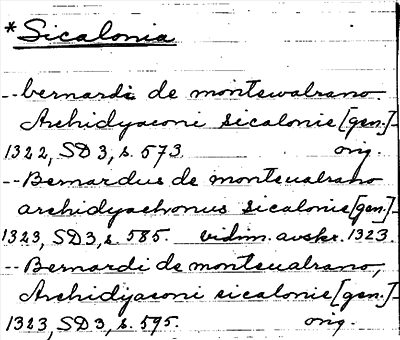 *Sicalonia
--bernardi de montewalrano
Archidyaconi sicalonie[gen.]-
1322, SD3, s. 573. orig.
--Bernardus de monteualrano
archidyachonus sicalonie[gen.]-
1323, SD3, s. 585. vidim. avskr. 1323.
--Bernardi de monteualrano,
Archidyaconi sicalonie[gen.]-
1323, SD3, s. 595. orig.